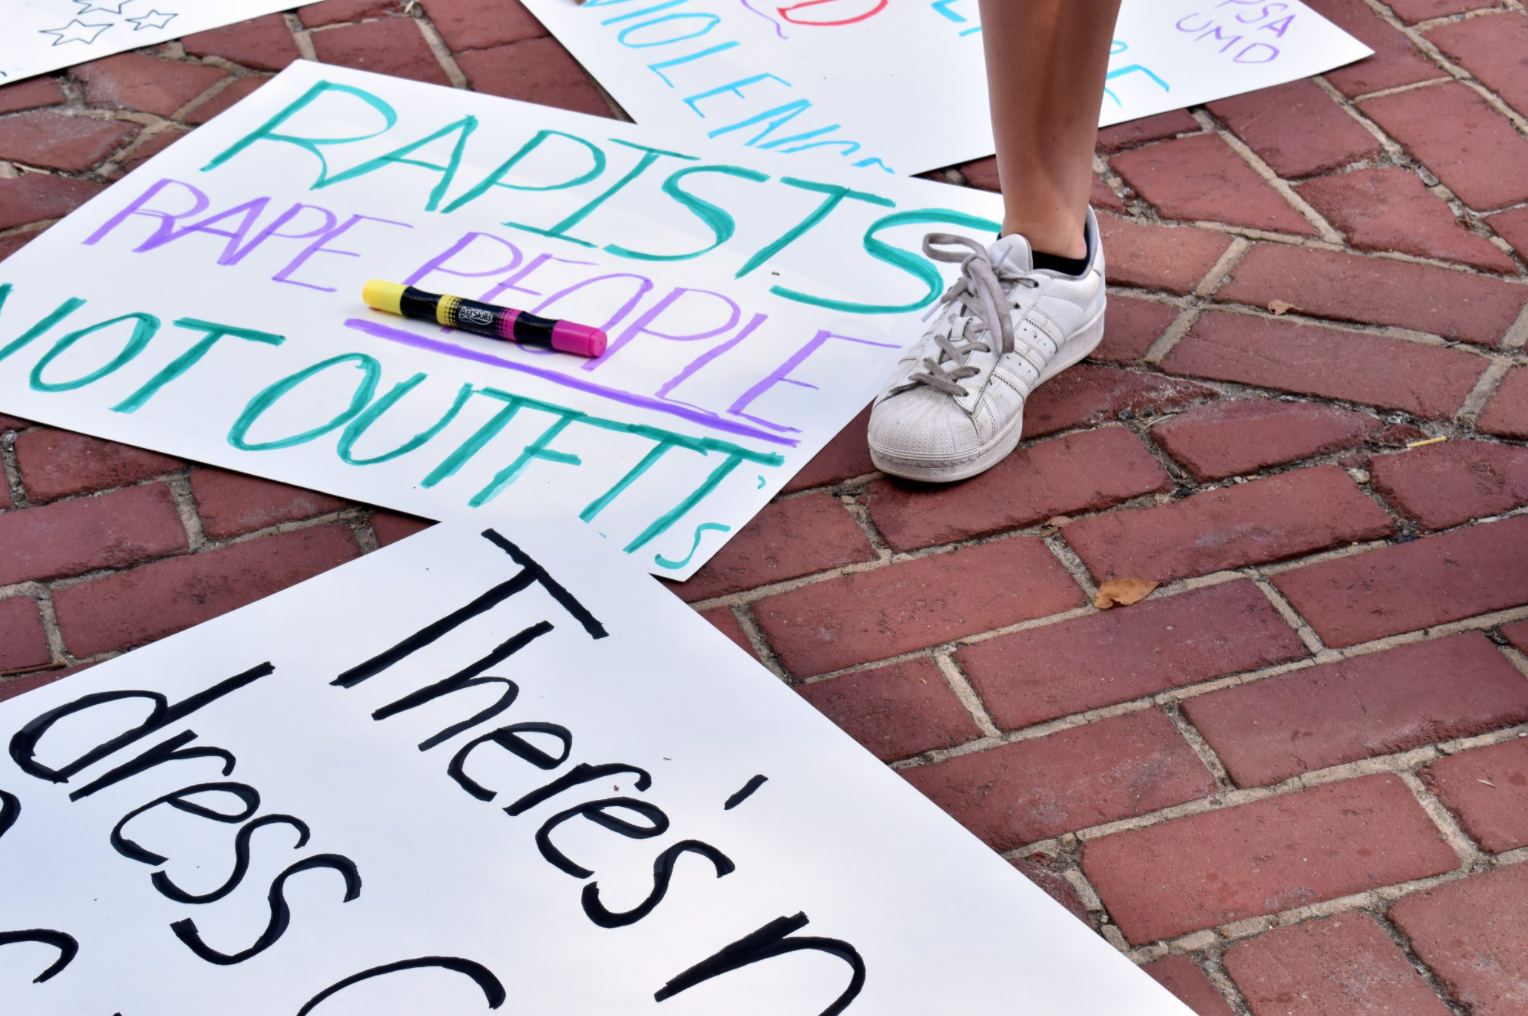 VIOLEN
PSA
UMD
RAPISTS
RAPE PEOPLE
NOT OUTFITT's
ArtSkills
There's n
dress c